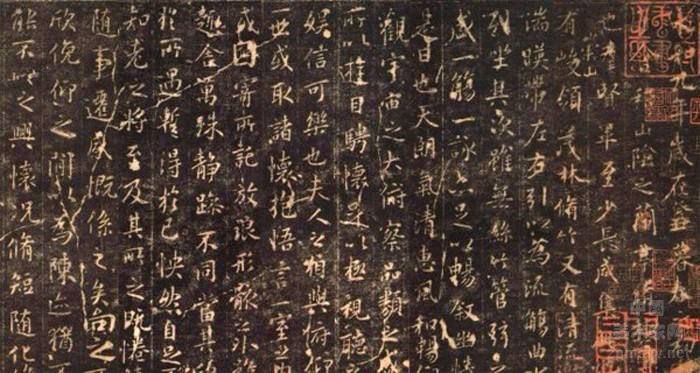 永和九年歲在癸丑暮春
稽山陰之蘭亭
也群賢畢至少長咸集
崇山
有峻領茂林脩竹又有清流
湍暎帶左右引以為流觴曲水
列坐其次雖無絲竹管弦
盛一觴一詠亦足以暢敘幽情
是日也天朗氣清惠風和暢
觀宇宙之大俯察品類之盛
所以遊目騁懷足以極視聽
娛信可樂也夫人之相與俯仰
一世或取諸懷抱悟言一室之內
或因寄所託放浪形骸之外雖
趣舍萬殊靜躁不同當其欣
於所遇蹔得於己怏然自足
知老之將至及其所之既惓
隨事遷感慨係之矣向之
欣俛仰之閒以為陳迹猶不
能不以之興懷況脩短隨化